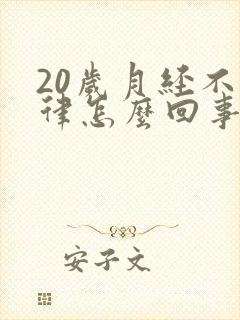 20歲月经不
律怎麼回事
安子文